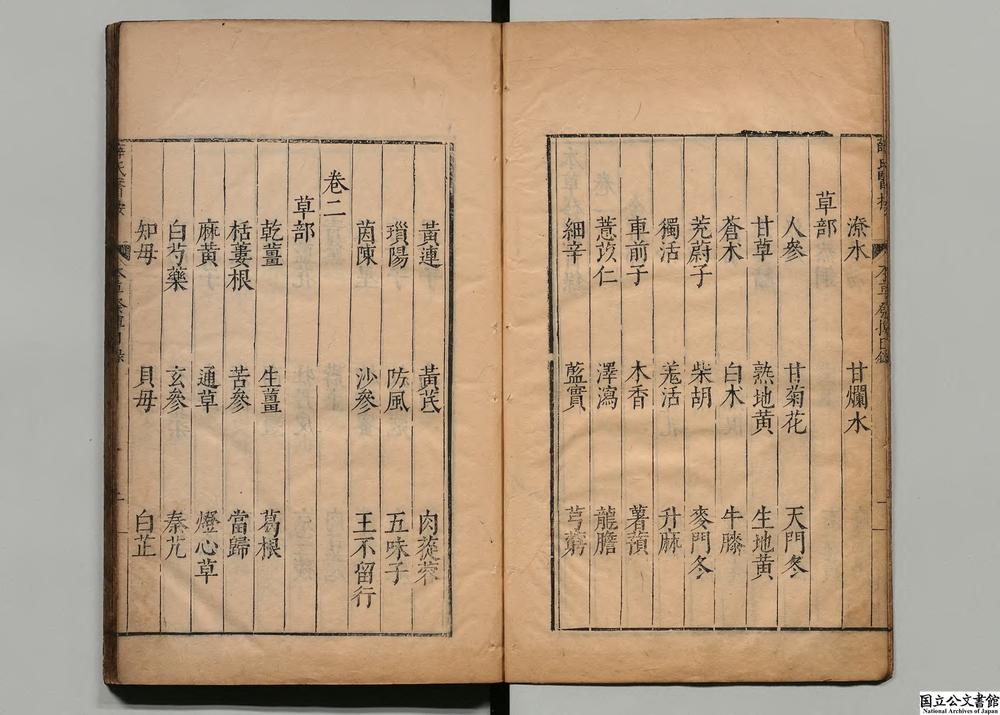 潦水 甘爛水
草部
人參 甘菊花 天門冬
甘草 熟地黃 生地黃
蒼木 白木 牛膝
茺蔚子 柴胡 麥門冬
獨活 羗活 升麻
車前子 木香 薯蕷
薏苡仁 澤瀉 龍膽
細辛 藍實 芎藭
黃連 黃芪 肉蓯蓉
瑣陽 防風 五味子
茵陳 沙參 王不留行
卷二
草部
乾薑 生薑 葛根
栝蔞根 苦參 當歸
麻黃 通草 燈心草
白芍藥 玄參 秦艽
知母 貝母 白芷
国立公文書館
National Archives of Japan